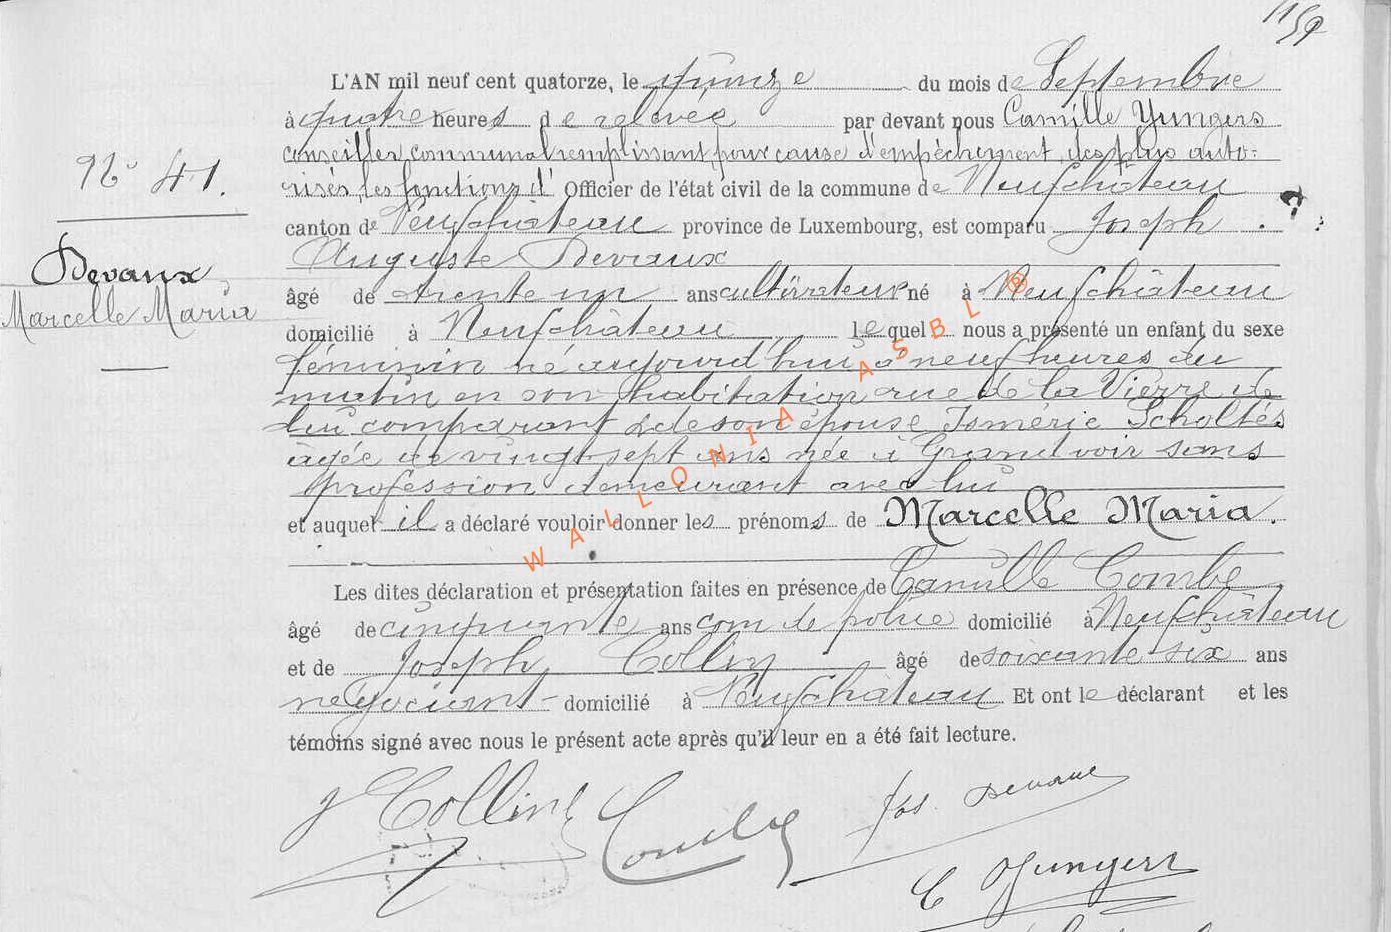 1159
L'AN mil neuf cent quatorze, le quinze du mois de Septembre
à quatre heures de relevée par devant nous Camille Yungers
conseiller communal remplissant pour cause d'empêchement des plus auto-
N° 41.
risés les fonctions d' Officier de l'état civil de la commune de Neufchâteau
canton de Neufchâteau province de Luxembourg, est comparu Joseph
Auguste Devaux
Devaux
Marcelle Maria
âgé de trente un ans cultivateur né à Neufchâteau
domicilié à Neufchâteau lequel nous a présenté un enfant du sexe
féminin né aujourd'hui à neuf heures du
matin en son habitation rue de la Vierre de
lui comparant & de son épouse Ismérie Scholtès
agée de vingt sept ans née à Grandvoir sans
profession demeurant avec lui
et auquel il a déclaré vouloir donner les prénoms de Marcelle Maria.
WALLONIA ASBL ®
Les dites déclaration et présentation faites en présence de Camille Combe
âgé de cinquante ans com de police domicilié à Neufchâteau
et de Joseph Collin âgé de soixante six ans
négociant domicilié à Neufchâteau Et ont le déclarant et les
témoins signé avec nous le présent acte après qu'il leur en a été fait lecture.
J Collin Combe Jos. Devaux
C Yungers